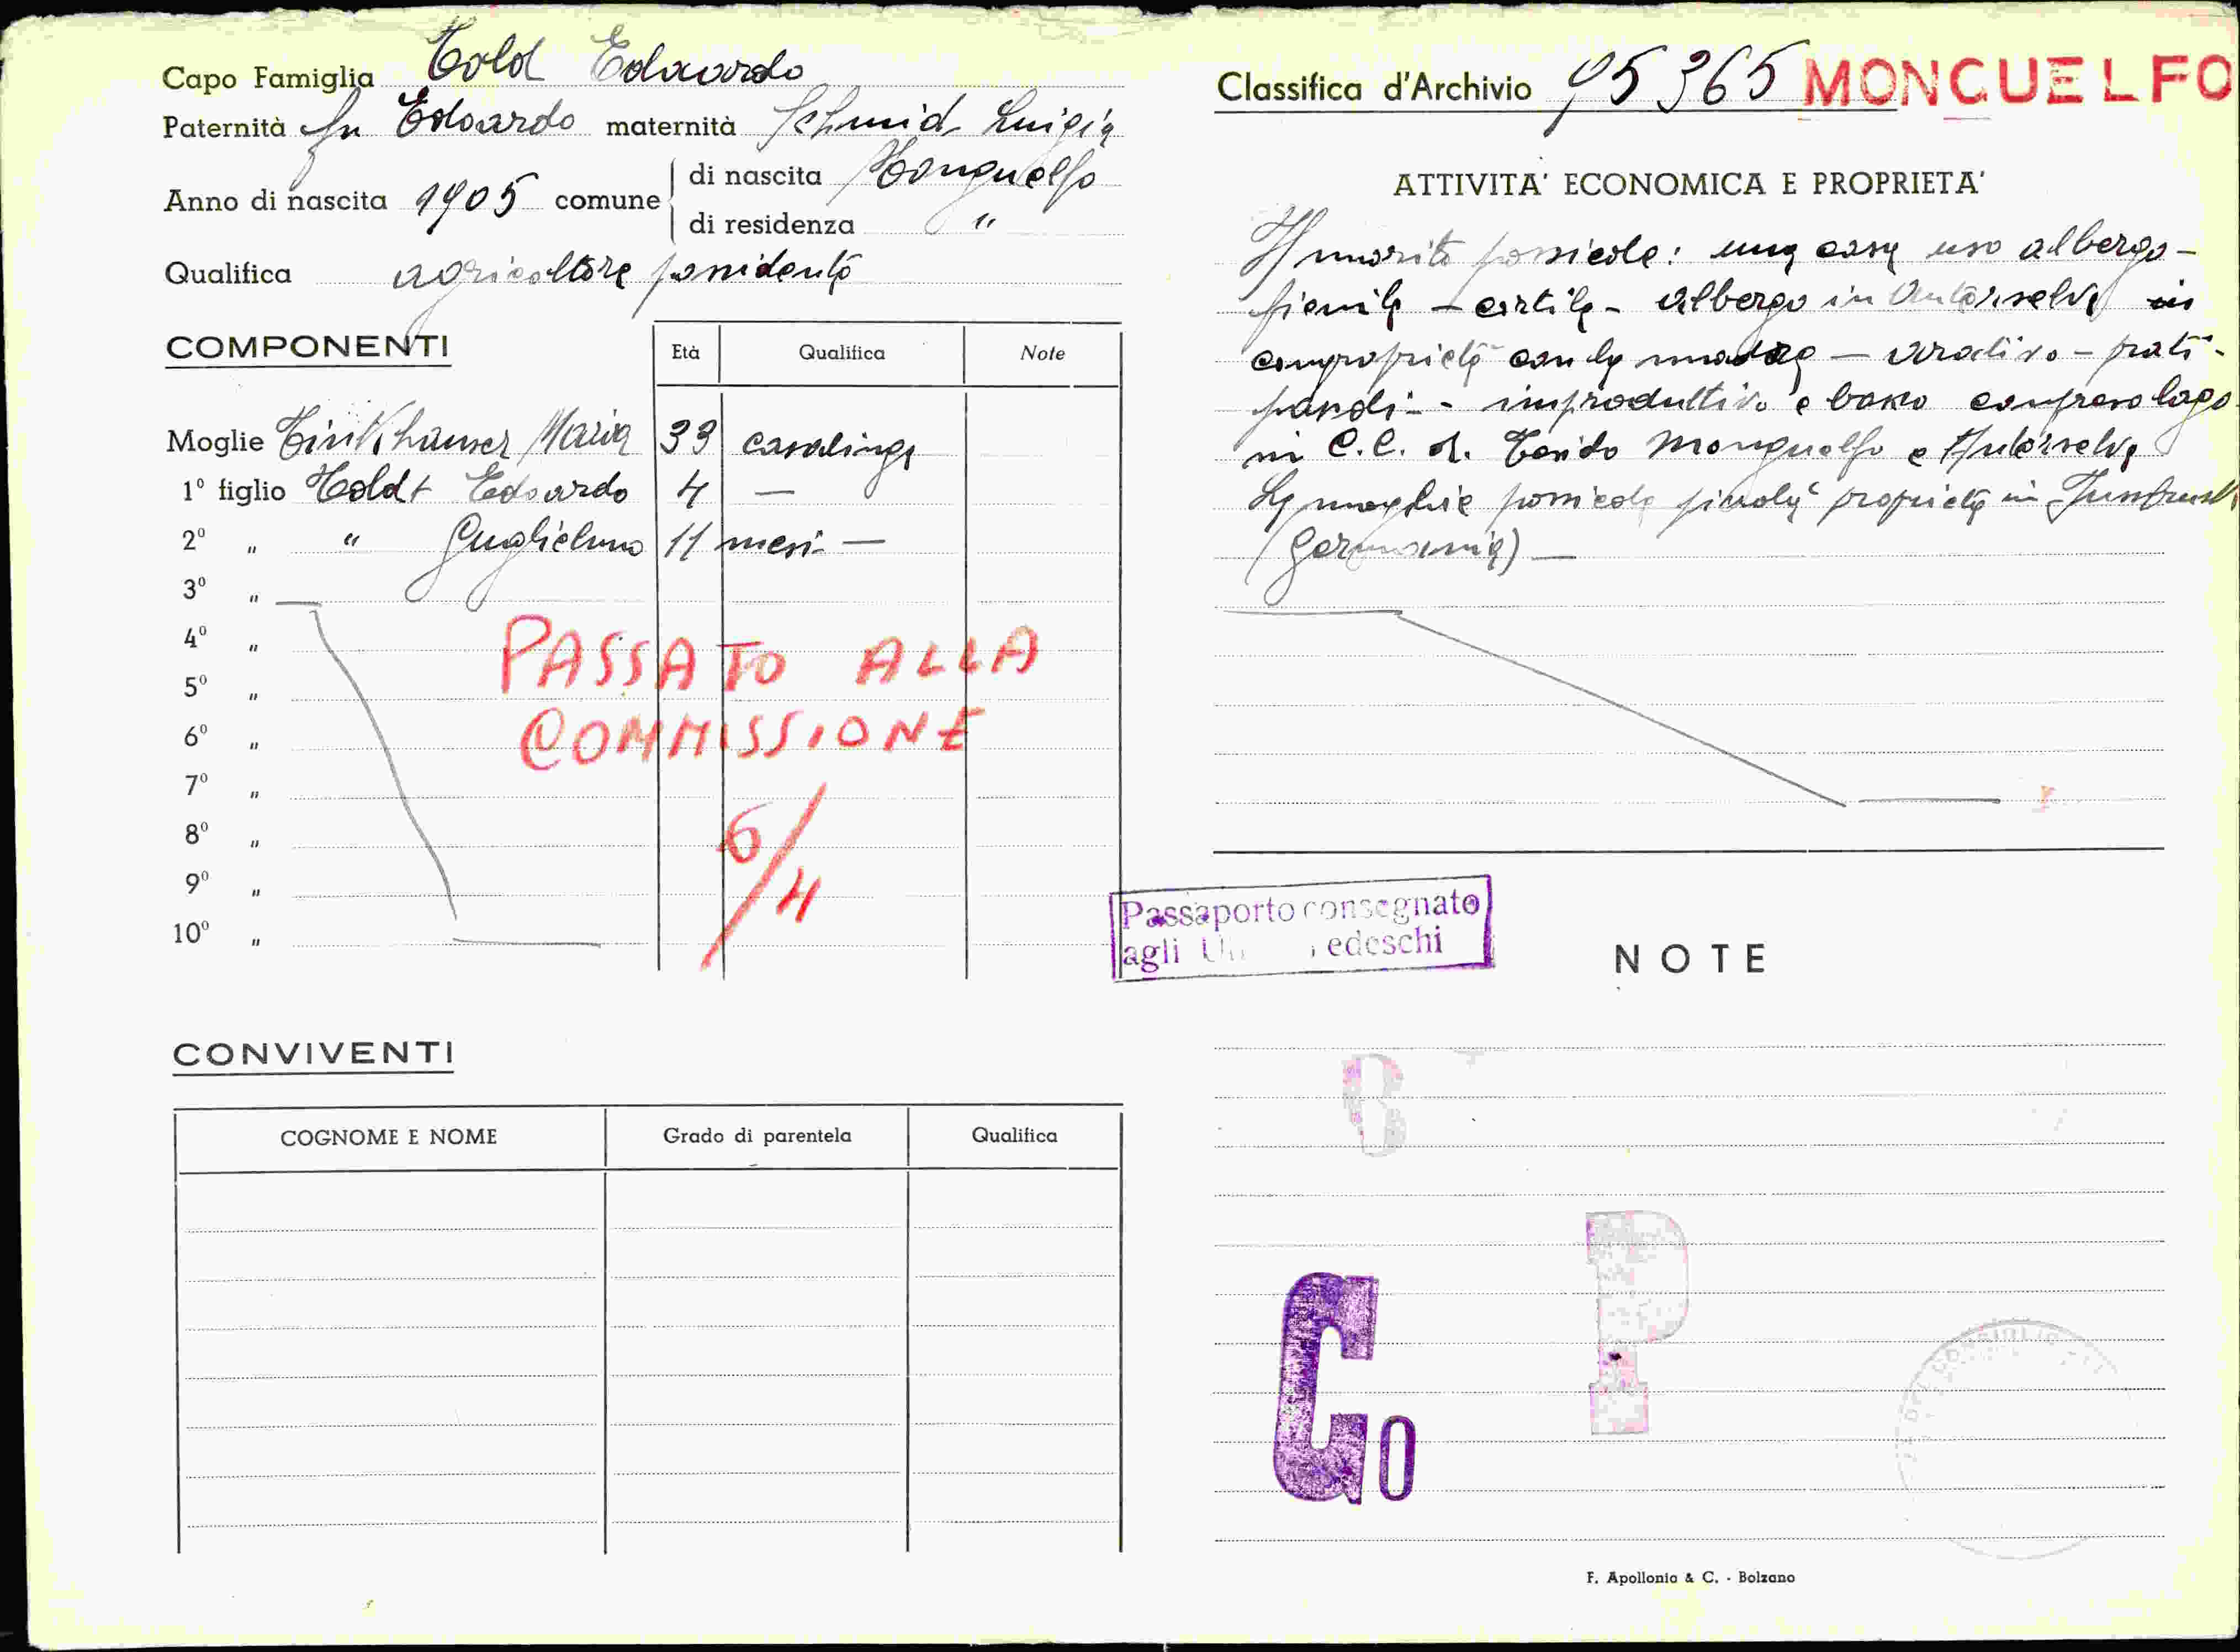 Capo Famiglia Told Edoardo
Paternità fu Edoardo maternità Schmid Luigia
Anno di nascita 1905 comune di nascita Monguelfo
di residenza "
Qualifica agricoltore possidente
COMPONENTI
Età Qualifica Note
Moglie Tinkhauser Maria 33 casalinga
1º figlio Toldt Edoardo 4 —
2º " " Guglielmo 11 mesi —
3º "
4º "
5º "
6º "
7º "
8º "
9º "
10º "
PASSATO ALLA
COMMISSIONE
6/4
CONVIVENTI
COGNOME E NOME Grado di parentela Qualifica
Classifica d'Archivio 95365 MONGUELFO
ATTIVITA' ECONOMICA E PROPRIETA'
Il marito possiede: una casa uso albergo -
fienile - cortile - albergo in Anterselva in
comproprietà con la madre - arativo - prati -
pascoli - improduttivo e bosco compreso lago
in C.C. di Tesido Monguelfo e Anterselva
La moglie possiede piccola proprietà in Innsbruck
(Germania) —
Passaporto consegnato
agli Tedeschi
NOTE
P
Go
F. Apollonio & C. - Bolzano